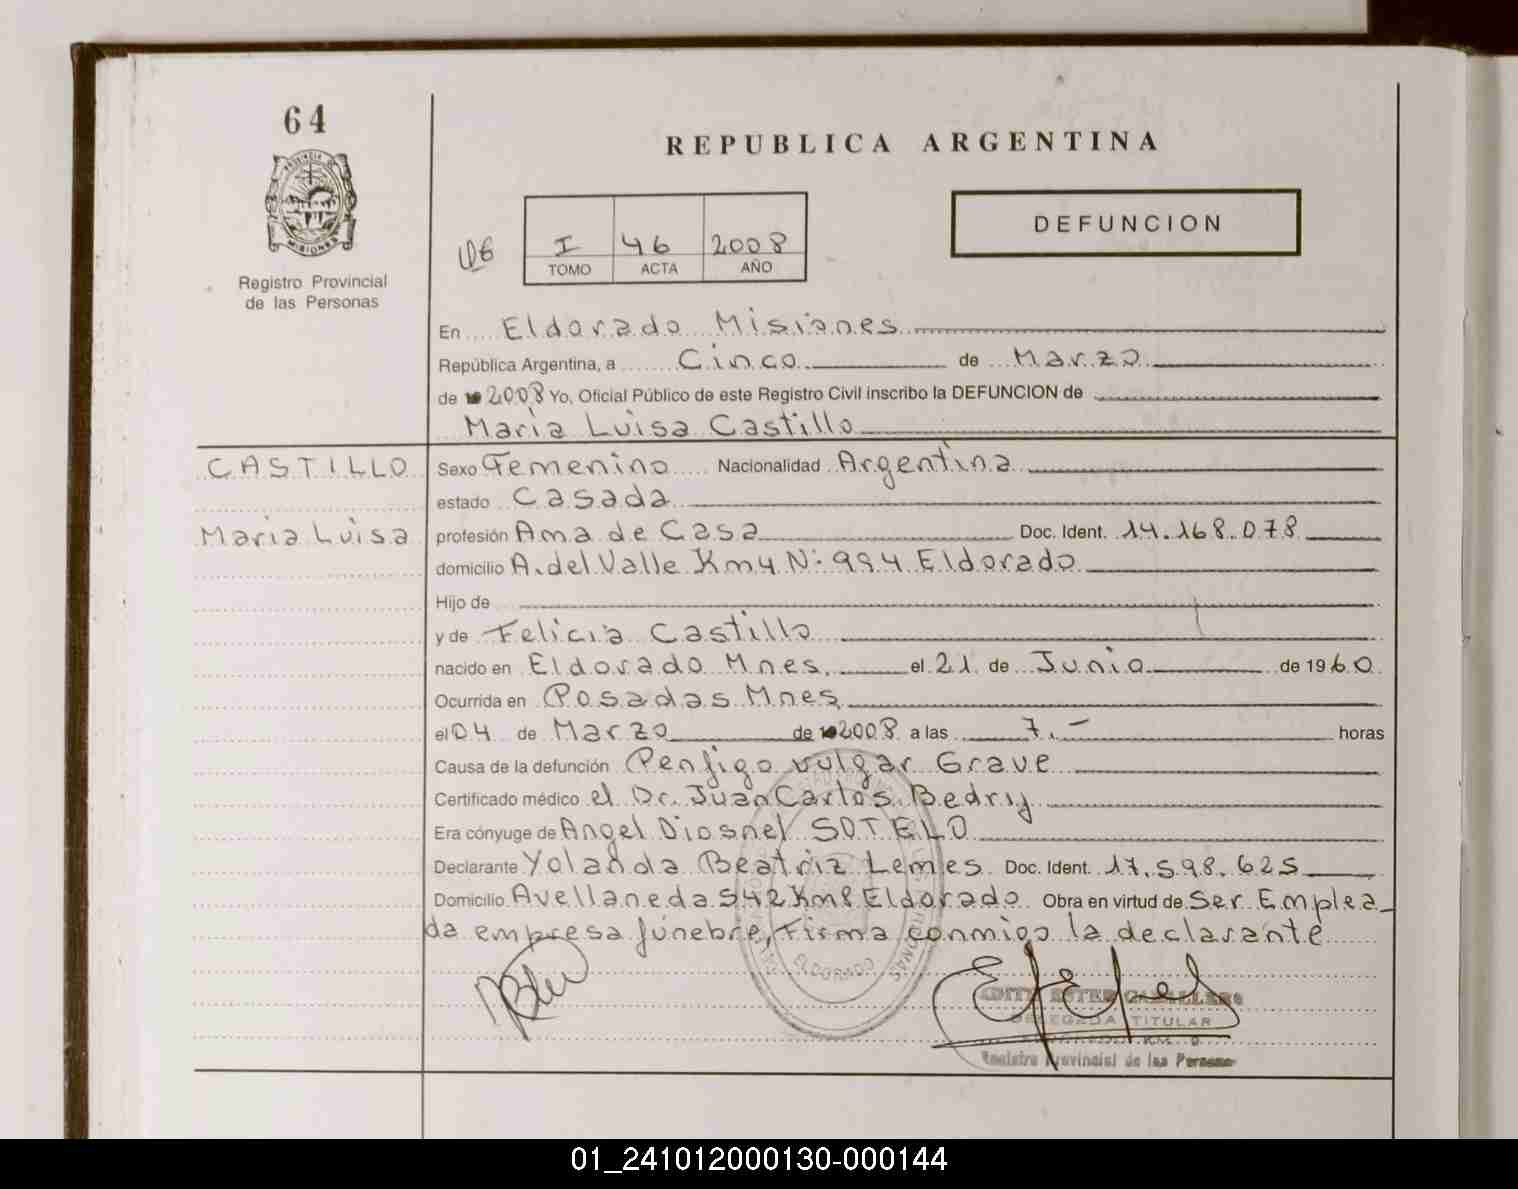 64
PROVINCIA DE
MISIONES
Registro Provincial
de las Personas
REPUBLICA ARGENTINA
DEFUNCION
I 46 2008
TOMO ACTA AÑO
En Eldorado Misiones
República Argentina, a Cinco de Marzo
de 2008 Yo, Oficial Público de este Registro Civil inscribo la DEFUNCION de
Maria Luisa Castillo
CASTILLO
Maria Luisa
Sexo Femenino Nacionalidad Argentina
estado Casada
profesión Ama de Casa Doc. Ident. 14.168.078
domicilio A. del Valle Km 4 Nº 994 Eldorado
Hijo de
y de Felicia Castillo
nacido en Eldorado Mnes. el 21 de Junio de 1960
Ocurrida en Posadas Mnes.
el 04 de Marzo de 2008 a las 7.- horas
Causa de la defunción Penfigo vulgar Grave
Certificado médico el Dr. Juan Carlos Bedrij
Era cónyuge de Angel Diosnel SOTELO
Declarante Yolanda Beatriz Lemes Doc. Ident. 17.598.625
Domicilio Avellaneda 542 Km 8 Eldorado Obra en virtud de Ser Emplea_
da empresa fúnebre, Firma conmigo la declarante
ELDORADO
EDITH ESTER CABALLERO
DELEGADA TITULAR
Registro Provincial de las Personas
01_241012000130-000144